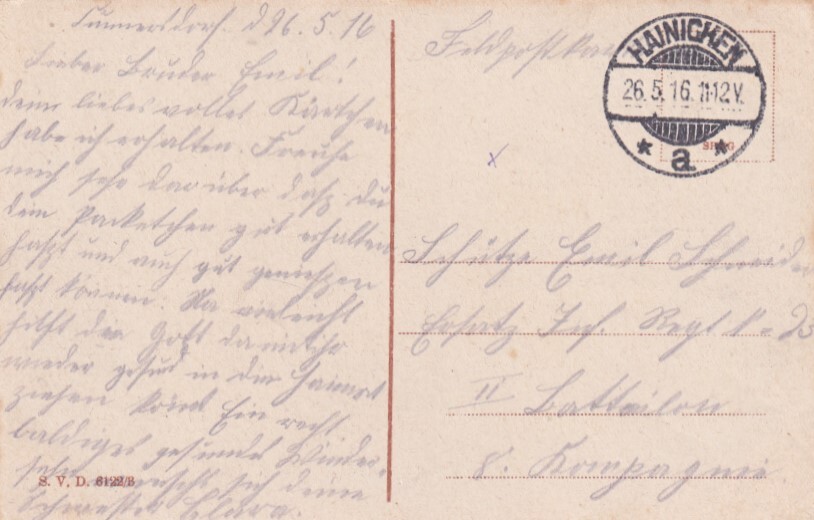 Cunnersdorf. d 26. 5. 16
Lieber Bruder Emil!
deine liebes volles Kärtchen
habe ich erhalten. Freuhe
mich sehr darüber dasz Du
dein Packetchen gut erhalten
haszt und auch gut genieszen
haszt können. Na vieleicht
hilft der Gott da
wieder gesund in die Heimat
ziehen könt Ein recht
baldiges gesundes Wieder-
sehn wünscht sich deine
Schwester Clara.
S. V. D. 6122/B
Feldpostkarte
HAINICHEN
26.5.16.11-12V.
* a *
Schütze Emil Schneider
Ersatz Inf. Regt N= 23
II Battailon
8. Kompagnie